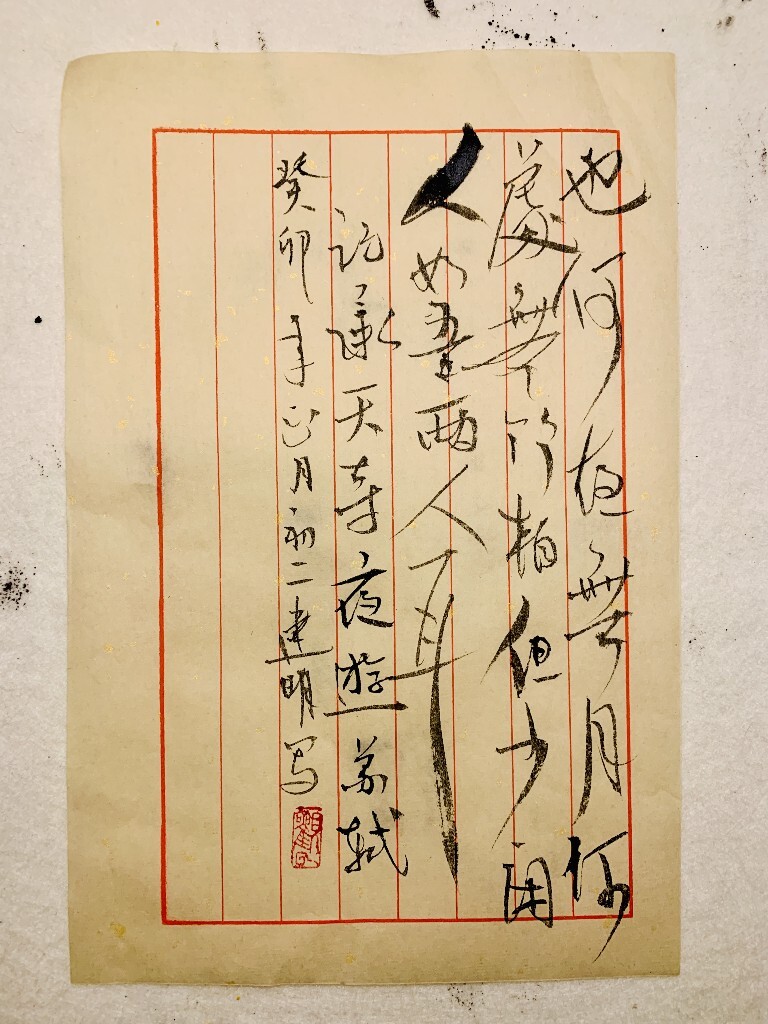 也何夜無月何
處無竹柏但少閑
人如吾兩人耳
記承天寺夜遊蘇軾
癸卯年正月初二建明写